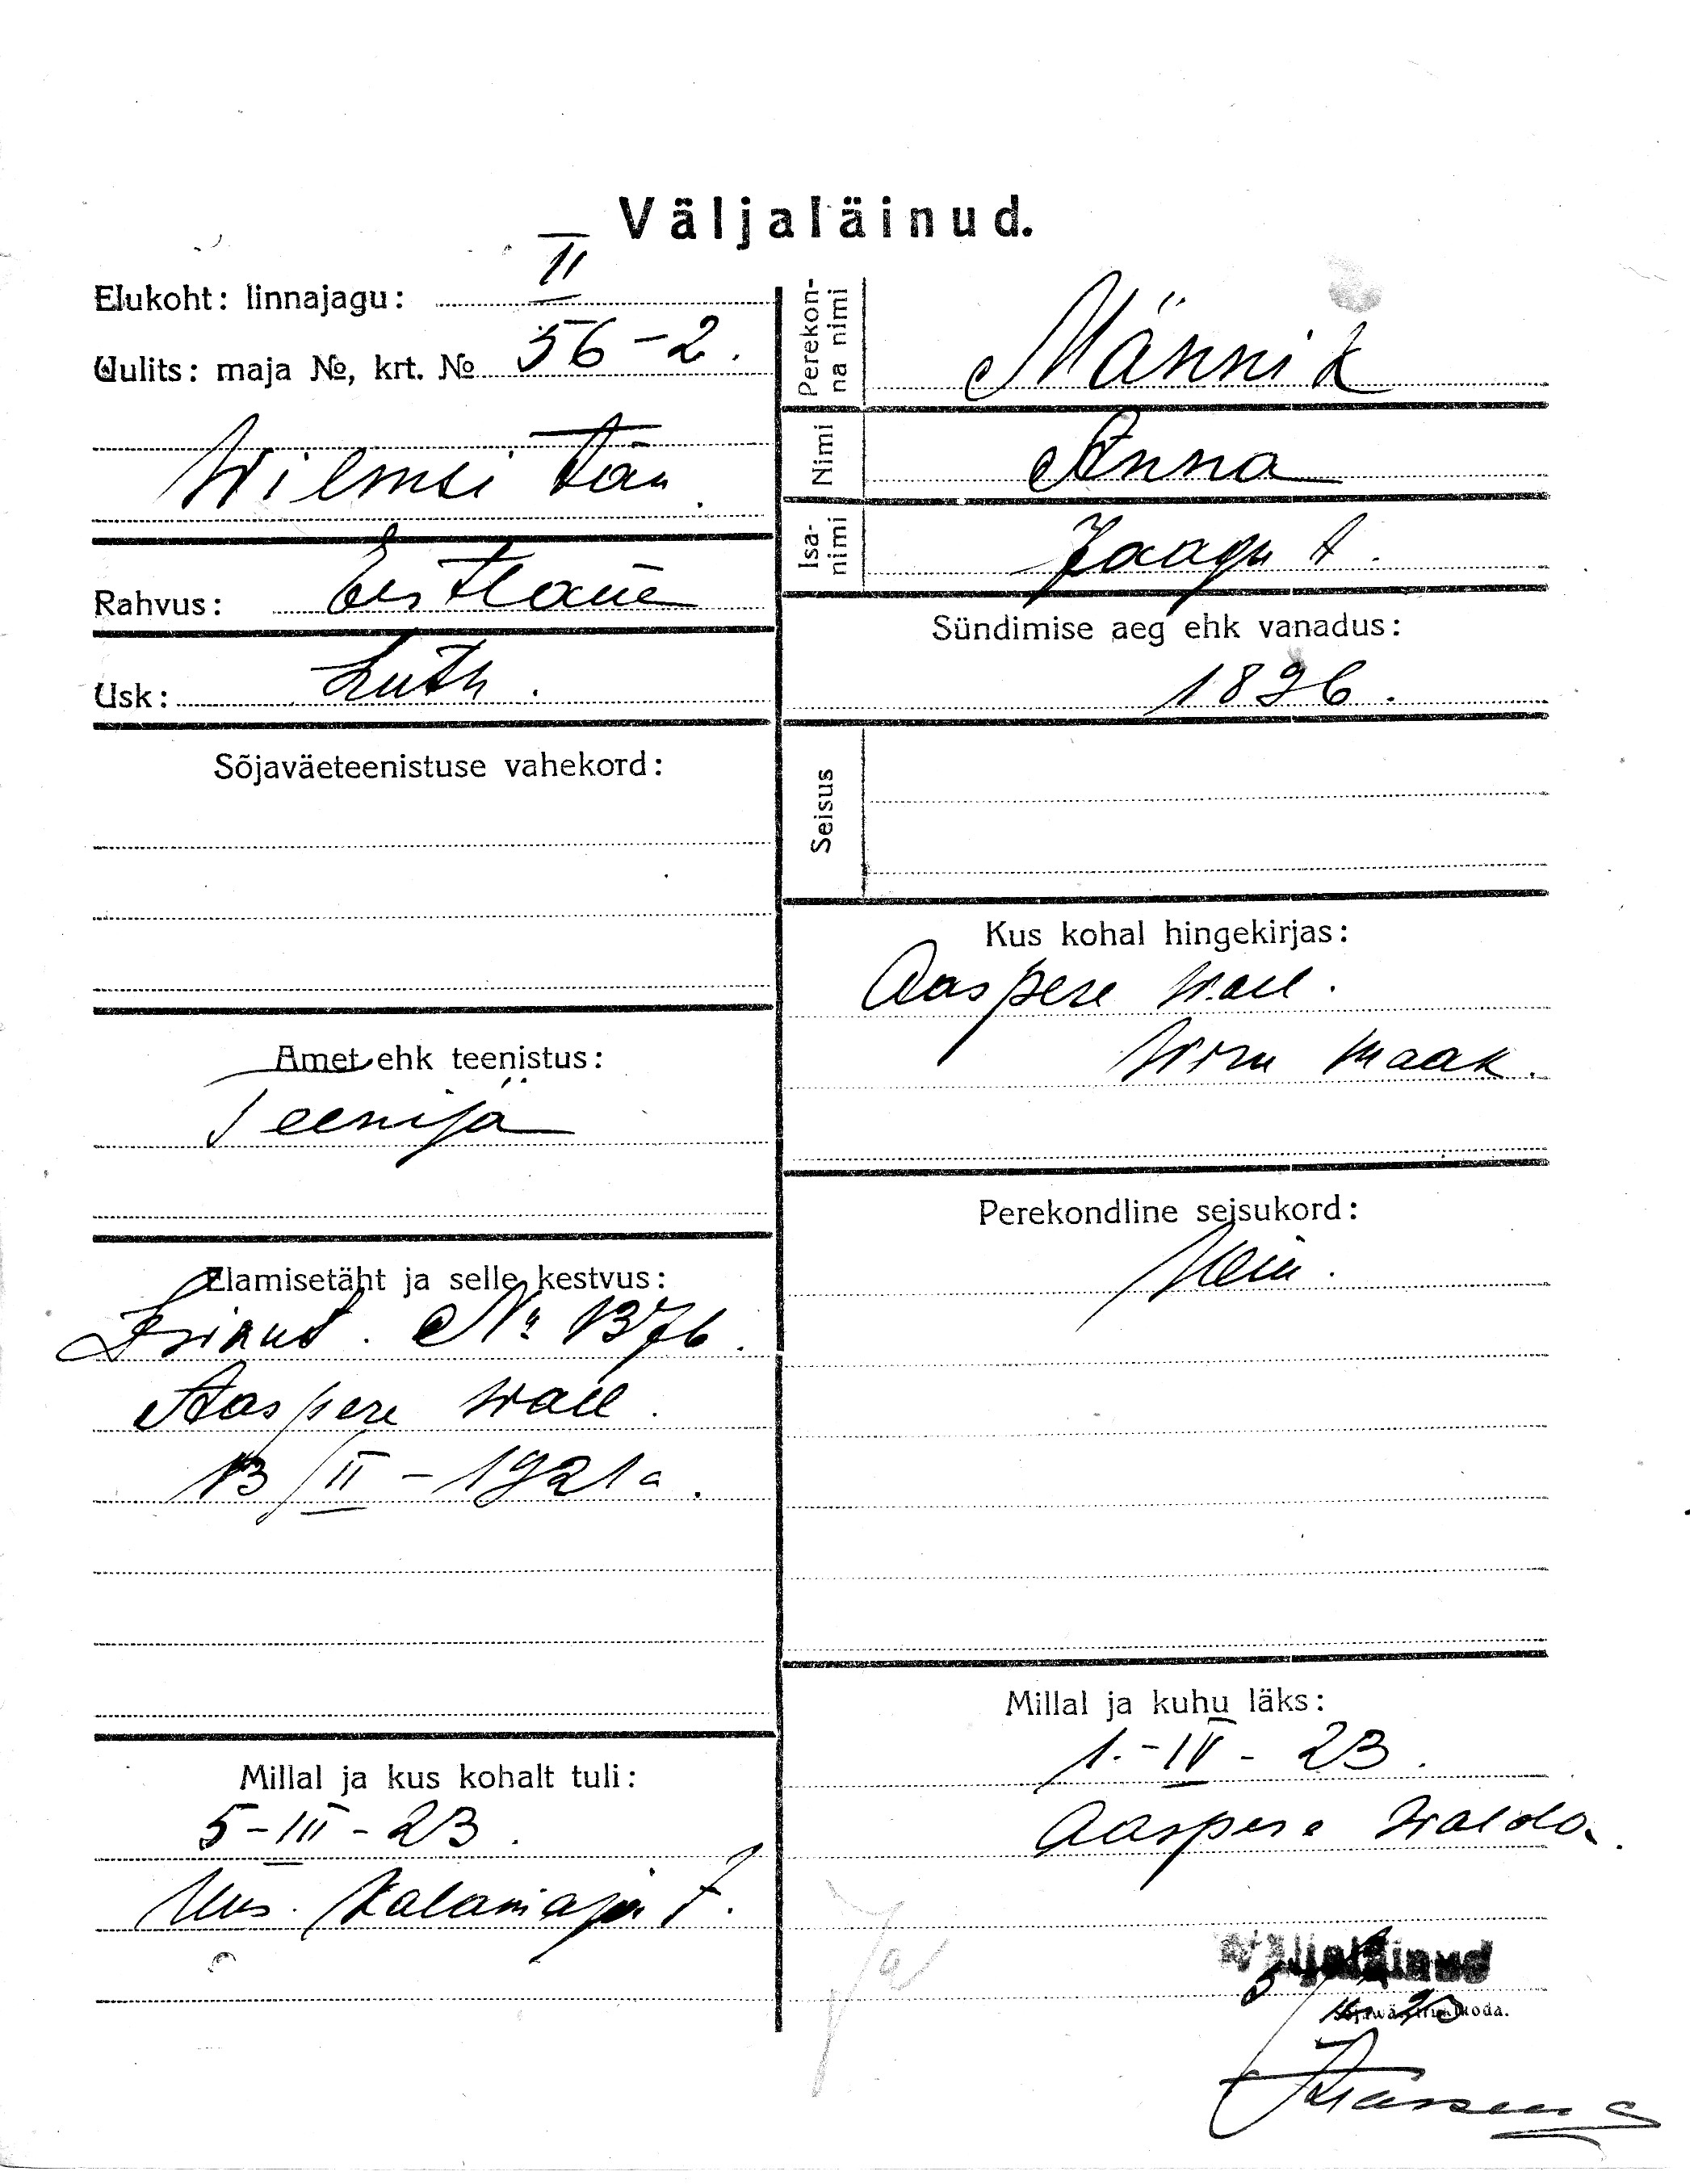 Väljaläinud.
Elukoht: linnajagu: II
Uulits: maja №, krt. № 56-2.
Wilmsi tän.
Rahvus: Eestlane
Usk: Luth.
Sõjaväeteenistuse vahekord:
Amet ehk teenistus:
Teenija
Elamisetäht ja selle kestvus:
Isikut. № 1376.
Aaspere wall.
13/II - 1921 a.
Millal ja kus kohalt tuli:
5-III-23.
Uus. Kalamaja 7.
Perekon-
na nimi
Männik
Nimi
Anna
Isa-
nimi
Jaagu t.
Sündimise aeg ehk vanadus:
1896.
Seisus
Kus kohal hingekirjas:
Aaspere wall.
Wiru maak.
Perekondline seisukord:
Millal ja kuhu läks:
1.-IV-23.
Aaspere walda.
Ja
Wäljaläinud